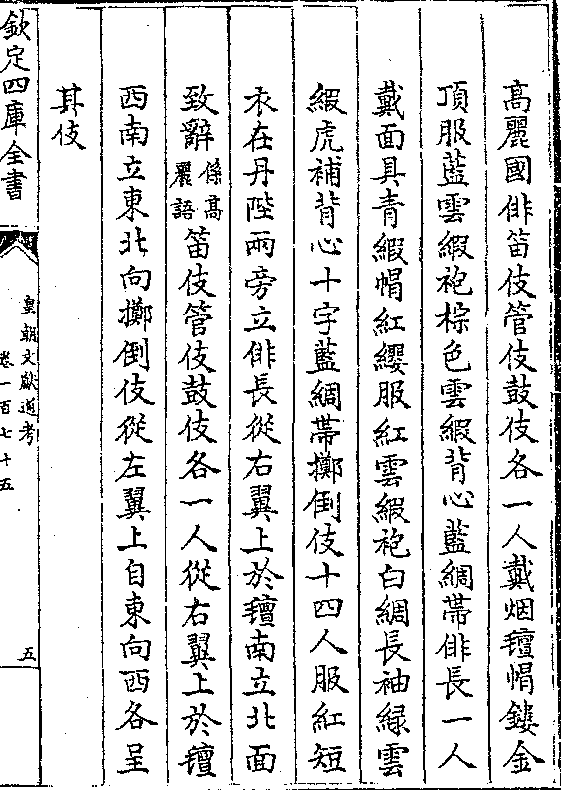 高麗國俳笛伎管伎鼓伎各一人戴烟氊帽鏤金
頂服藍雲緞袍棕色雲緞背心藍綢帶俳長一人
戴面具青緞帽紅纓服紅雲緞袍白綢長袖綠雲
緞虎補背心十字藍綢帶擲倒伎十四人服紅短
衣在丹陛兩旁立俳長從右翼上於氊南立北面
致辭係高麗語笛伎管伎鼓伎各一人從右翼上於氊
西南立東北向擲倒伎從左翼上自東向西各呈
其伎
欽定四庫全書
皇朝文獻通考
卷一百七十五
五